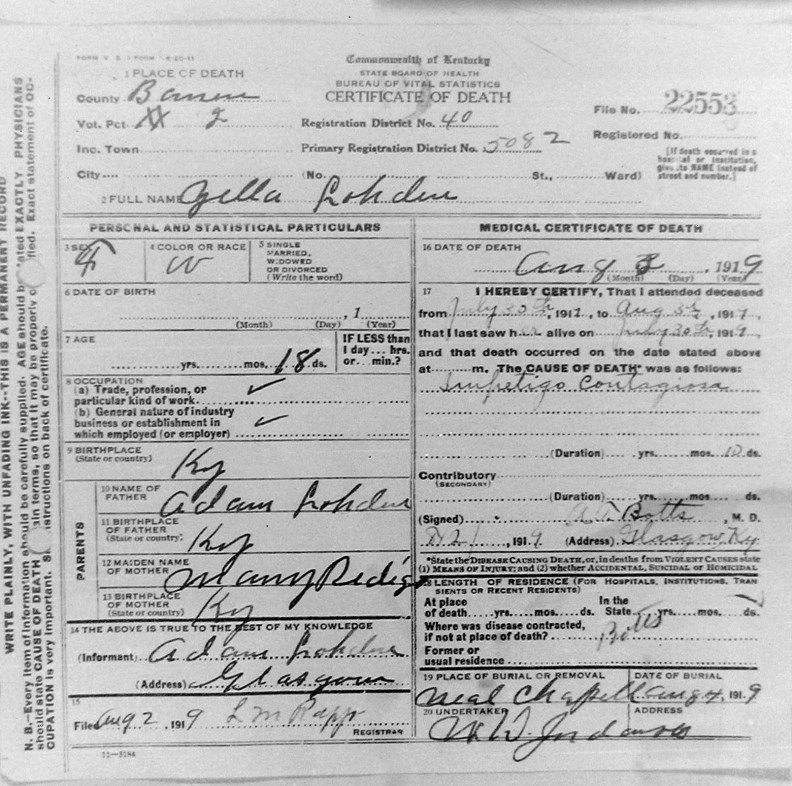 Commonwealth of Kentucky
STATE BOARD OF HEALTH
BUREAU OF VITAL STATISTICS
CERTIFICATE OF DEATH
1 PLACE OF DEATH
County Barren
Vot. Pct. 2
Inc. Town
City
Registration District No. 40
Primary Registration District No. 5082
(No. St., Ward)
File No. 22553
Registered No.
[If death occurred in a hospital or institution, give its NAME instead of street and number.]
2 FULL NAME Zella Lohden
PERSONAL AND STATISTICAL PARTICULARS
3 SEX F
4 COLOR OR RACE W
5 SINGLE
MARRIED,
WIDOWED
OR DIVORCED
(Write the word)
6 DATE OF BIRTH
, 1
(Month) (Day) (Year)
7 AGE
yrs. mos. 18 ds.
IF LESS than
1 day... hrs.
or... min.?
8 OCCUPATION
(a) Trade, profession, or
particular kind of work ✓
(b) General nature of industry
business or establishment in
which employed (or employer) ✓
9 BIRTHPLACE
(State or country) Ky
PARENTS
10 NAME OF
FATHER Adam Lohden
11 BIRTHPLACE
OF FATHER
(State or country) Ky
12 MAIDEN NAME
OF MOTHER Mary
13 BIRTHPLACE
OF MOTHER
(State or country) Ky
14 THE ABOVE IS TRUE TO THE BEST OF MY KNOWLEDGE
(Informant) Adam Lohden
(Address) Glasgow
15
Filed Aug 2, 1919 L M Rapp
REGISTRAR
11-3184
MEDICAL CERTIFICATE OF DEATH
16 DATE OF DEATH
Aug 3, 1919
(Month) (Day) (Year)
17 I HEREBY CERTIFY, That I attended deceased
from July 30th, 191, to Aug, 191
that I last saw her alive on July 30th, 1919
and that death occurred on the date stated above
at m. The CAUSE OF DEATH* was as follows:
Impetigo Contagiosa
(Duration) yrs. mos. 10 ds.
Contributory
(SECONDARY)
(Duration) yrs. mos. ds.
(Signed) A. T. Botts, M. D.
, 1919 (Address) Glasgow Ky
*State the DISEASE CAUSING DEATH, or, in deaths from VIOLENT CAUSES state
(1) MEANS OF INJURY; and (2) whether ACCIDENTAL, SUICIDAL or HOMICIDAL
18 LENGTH OF RESIDENCE (FOR HOSPITALS, INSTITUTIONS, TRAN
SIENTS OR RECENT RESIDENTS)
At place In the
of death yrs. mos. ds. State yrs. mos. ds.
Where was disease contracted,
if not at place of death? Botts
Former or
usual residence
19 PLACE OF BURIAL OR REMOVAL
Neal Chapel
DATE OF BURIAL
Aug 4, 1919
20 UNDERTAKER
ADDRESS
W W Jordan
WRITE PLAINLY, WITH UNFADING INK--THIS IS A PERMANENT RECORD
N. B.--Every item of information should be carefully supplied. AGE should be stated EXACTLY. PHYSICIANS
should state CAUSE OF DEATH in plain terms, so that it may be properly classified. Exact statement of OC-
CUPATION is very important. See instructions on back of certificate.